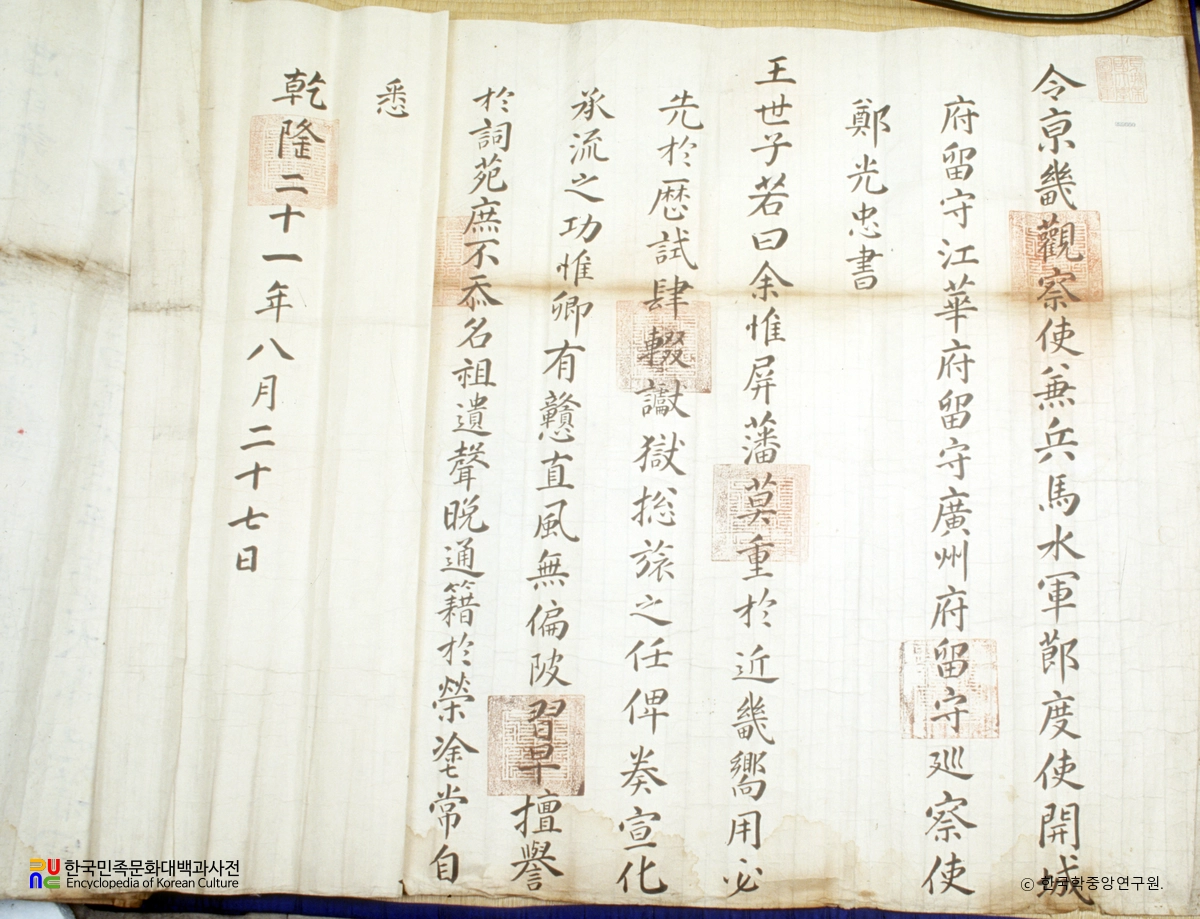 令京畿觀察使兼兵馬水軍節度使開城
府留守江華府留守廣州府留守廵察使
鄭光忠書
王世子若曰余惟屛藩莫重於近畿嚮用必
先於歷試肆輟讞獄摠旅之任俾奏宣化
承流之功惟卿有戇直風無偏陂習早擅譽
於詞苑庶不忝名祖遺聲晩通籍於榮塗常自
悉
乾隆二十一年八月二十七日
한국민족문화대백과사전
Encyclopedia of Korean Culture
© 한국학중앙연구원.